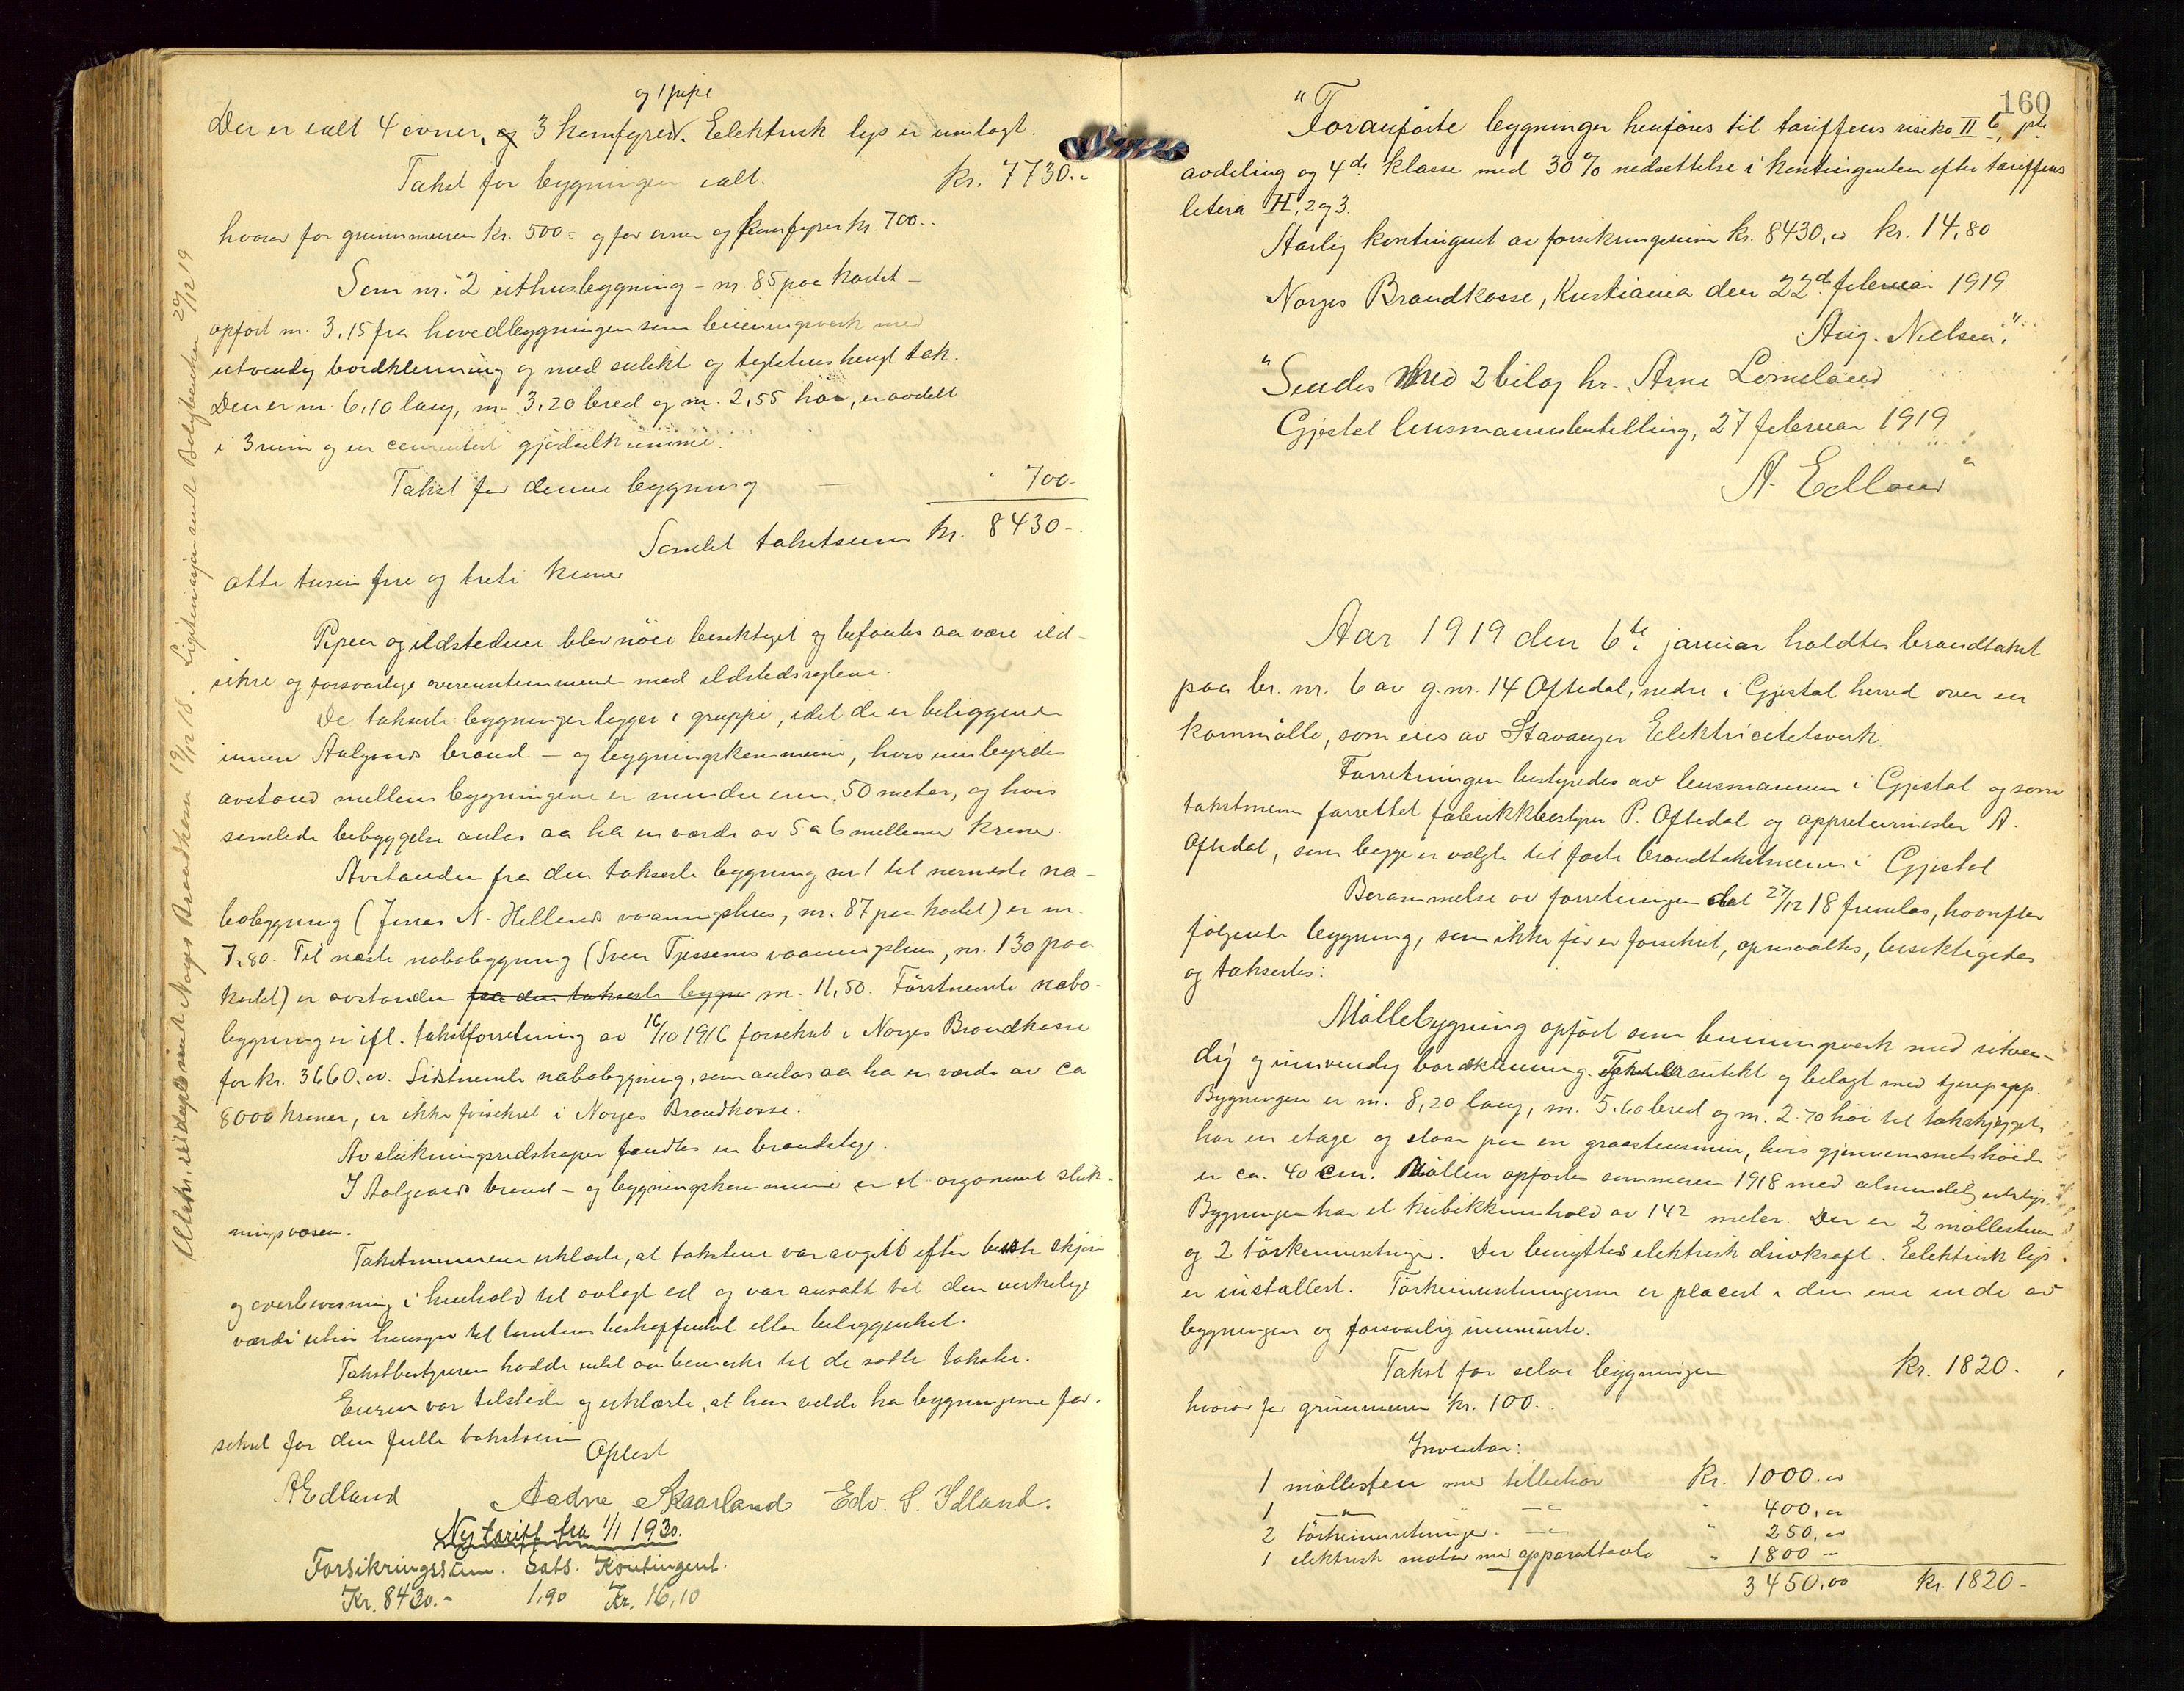 og 1 pipe
Der er ialt 4 ovner, og 3 komfyrer. Elektrisk lys er indlagt.
Takst for bygningen ialt. kr. 7730.-
hvorav for grunnmuren kr. 500.- og for ovner og komfyrer kr. 700.-
Som nr. 2 uthusbygning - nr. 85 paa kartet -
opført m. 3,15 fra hovedbygningen som bindingsverk med
utvendig bordklædning og med sutekt og teglstenshengt tak.
Den er m. 6,10 lang, m. 3,20 bred og m. 2,55 høi, er avdelt
i 3 rum og en cementert gjødselkumme.
Takst for denne bygning - " 700-
Samlet takstsum kr. 8430-
otte tusin fire og treti kroner
Pipen og ildstedene blev nøie besiktiget og befantes aa være ild-
sikre og forsvarlige overensstemmende med ildstedsreglene.
De takserte bygninger ligger i gruppe, idet de er beliggende
innen Aalgaards brand - og bygningskommune, hvis innbyrdes
avstand mellem bygningene er mindre enn 50 meter, og hvis
samlede bebyggelse antas aa ha en værdi av 5 a 6 millioner kroner.
Avstanden fra den takserte bygning nr 1 til nermeste na-
bobygning (Jonas N. Hellands vaaningshus, nr. 87 paa kartet) er m.
7.80. Til næste nabobygning (Sven Tjessems vaaningshus, nr. 130 paa
kartet) er avstanden fra den takserte bygn m. 11,50. Førstnevnte nabo-
bygning er ifl. takstforretning av 16/10 1916 forsikret i Norges Brandkasse
for kr. 3660.oo. Sistnevnte nabobygning, som antas aa ha en værdi av ca
8000 kroner, er ikke forsikret i Norges Brandkasse.
Av slukningsredskaper fandtes en brandstige.
I Aalgaards brand - og bygningskommune er et organisert sluk-
ningsvæsen.
Takstmennene erklærte, at takstene var avgitt efter beste skjøn
og overbevisning i henhold til avlagt ed og var ansatt til den virkelige
værdi uten hensyn til tomtens beskaffenhet eller beliggenhet.
Takstbestyreren hadde intet aa bemerke til de satte takster.
Eieren var tilstede og erklærte, at han vilde ha bygningene for-
sikret for den fulle takstsum
Oplest
AEdland Aadne Skaarland Edv. S. Idland.
Ny tariff fra 1/1 1930.
Forsikringssum. Sats. Kontingent.
Kr. 8430.- 1,90 Kr. 16,10
Utskr. utstedt sendt Norges Brandkasse 19/12 18. Legitimasjon sendt 20/12 19
160
"Foranførte bygninger henføres til tariffens risiko II b, 1ste
avdeling og 4de klasse med 30% nedsettelse i kontingenten efter tariffens
litera H, 2 og 3.
Aarlig kontingent av forsikringssum kr. 8430,oo kr. 14,80
Norges Brandkasse, Kristiania den 22de februar 1919.
Aug. Nielsen."
"Sendes med 2 bilag hr. Arne Lomeland
Gjestal lensmannsbestilling, 27 februar 1919
A. Edland"
Aar 1919 den 6te januar holdtes brandtakst
paa br. nr. 6 av g.nr. 14 Oftedal, nedre i Gjestal herred over en
kornmølle, som eies av Stavanger Elektricitetsverk.
Forretningen bestyredes av lensmannen i Gjestal og som
takstmenn forrettet fabrikkbestyrer P. Oftedal og appreturmester A.
Oftedal, som begge er valgte til faste brandtakstmenn i Gjestal
Berammelse av forretningen dat 27/12 18 fremlas, hvorefter
følgende bygning, som ikke før er forsikret, opmaaltes, besiktigedes
og taksertes:
Møllebygning opført som bindingsverk med utven-
dig og innvendig bordklædning. Taket er sutekt og belagt med tjærepapp.
Bygningen er m. 8,20 lang, m. 5.60 bred og m. 2.70 høi til takskjægget,
har en etage og staar paa en graastensmur, hvis gjennemsnitshøide
er ca. 40 cm. Møllen opførtes sommeren 1918 med almindelig
Bygningen har et kubikkinnhold av 142 meter. Der er 2 møllestener
og 2 tørkeinnretninger. Der benyttes elektrisk drivkraft. Elektrisk lys
er installert. Tørkeinnretningene er placert i den ene ende av
bygningen og forsvarlig innmurte.
Takst for selve bygningen kr. 1820.
hvorav for grunnmuren kr. 100.
Inventar:
1 møllesten med tilbehør kr. 1000.oo
1 -"- " 400,oo
2 tørkeinnretninger. " 250,oo
1 elektrisk motor med apparattavle " 1800 -
3450,00 kr. 1820-